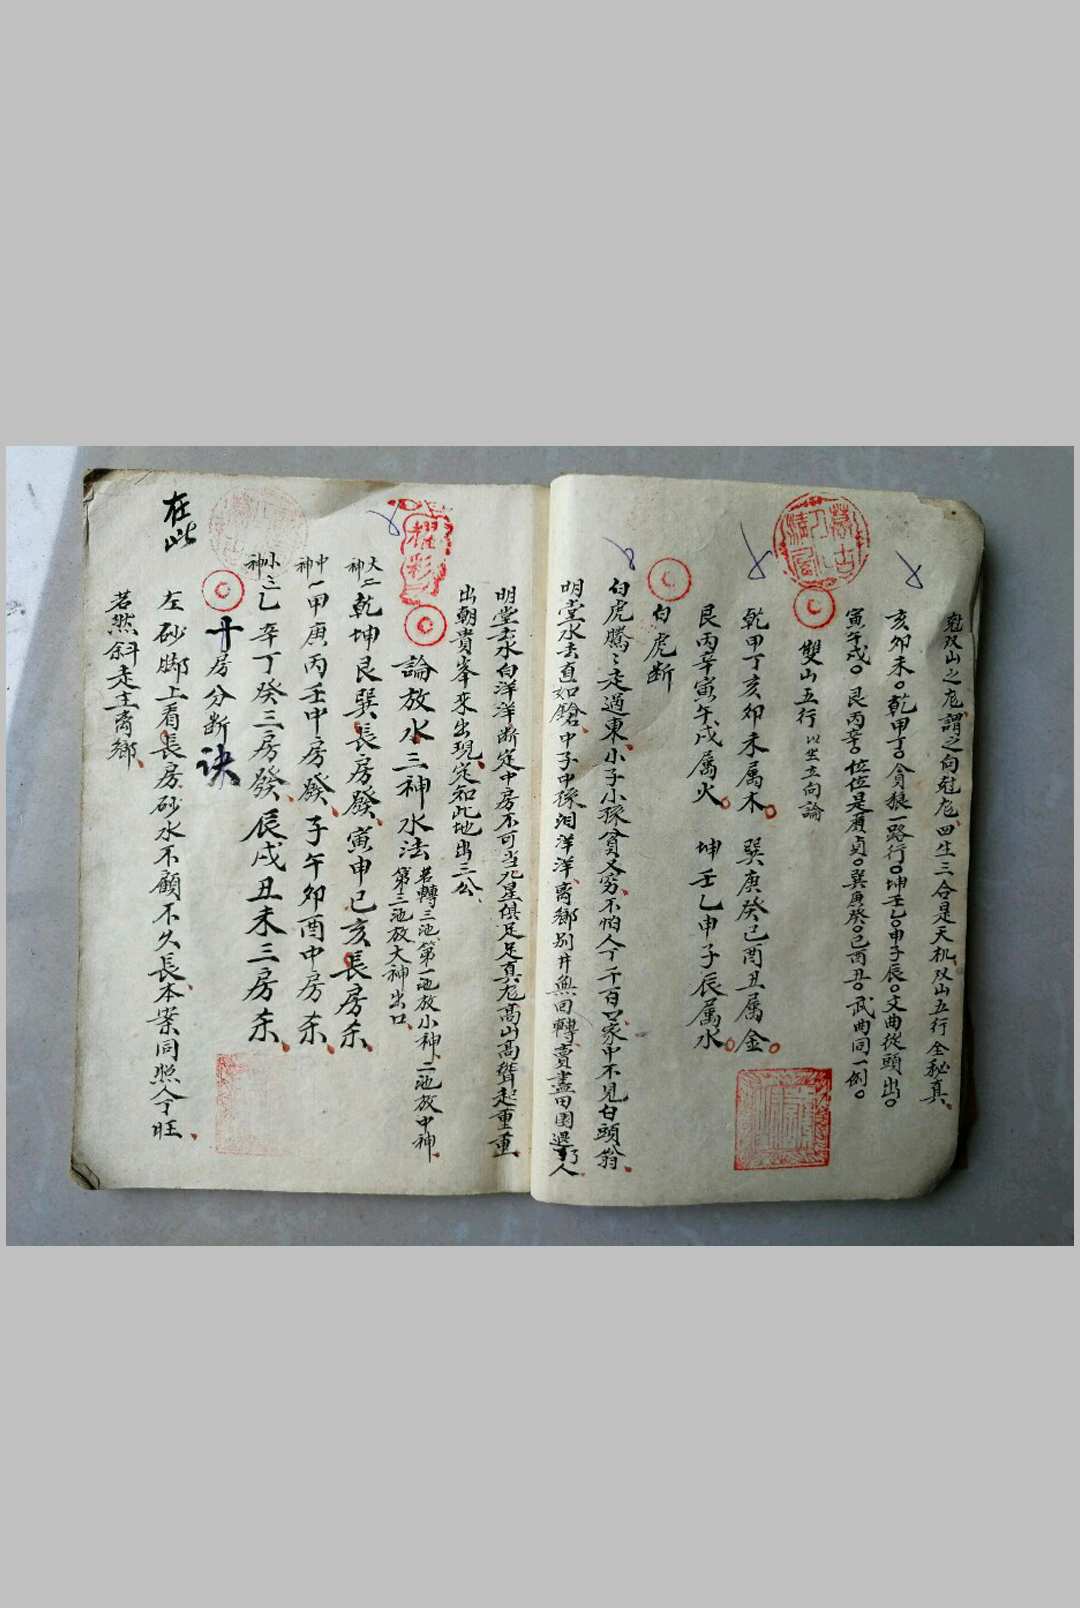 尅双山之尨謂之向尅尨四生三合是天机双山五行全秘真
亥卯未。乾甲丁。貪狼一路行。坤壬乙。申子辰。文曲從頭出。
寅午戌。艮丙辛。位位是廉貞。巽庚癸。已酉丑。武曲同一例。
雙山五行 以坐立向論
乾甲丁亥卯未属木。 巽庚癸已酉丑属金。
艮丙辛寅午戌属火。 坤壬乙申子辰属水。
白虎断
白虎騰〻走過東小子小孫貧又穷不怕人丁千百口家中不見白頭翁
明堂水去直如鎗中子中孫泪洋洋离鄉别井無回轉賣盡田園退了人
明堂去水向洋洋断定中房不可当九星俱足足真尨高山高聳起重重
出朝貴峯來出現定知此地出三公
論放水三神水法 若轉三池第一池放小神二池放中神
第三池放大神出口
大神 二乾坤艮巽長房發寅申已亥長房杀
中神 一甲庚丙壬中房發子午卯酉中房杀
小神 三乙辛丁癸三房發辰戌丑未三房杀
十房分断诀
在此
左砂脚上看長房砂水不顧不久長本案同照人丁旺
若然斜走主离鄉